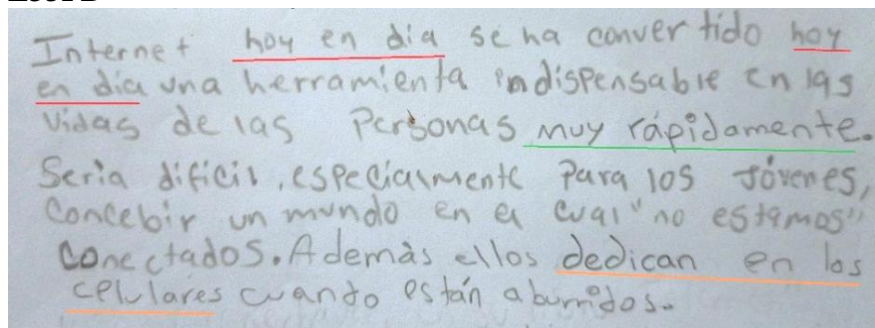 Internet hoy en dia se ha convertido hoy
en dia una herramienta indispensable en las
vidas de las Personas muy rápidamente.
Seria dificil, especialmente Para los Jóvenes,
Concebir un mundo en el cual "no estamos"
conectados. Además ellos dedican en los
celulares cuando están aburridos.